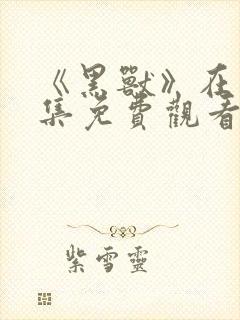 《黑獸》在
集免費觀看
紫雪靈